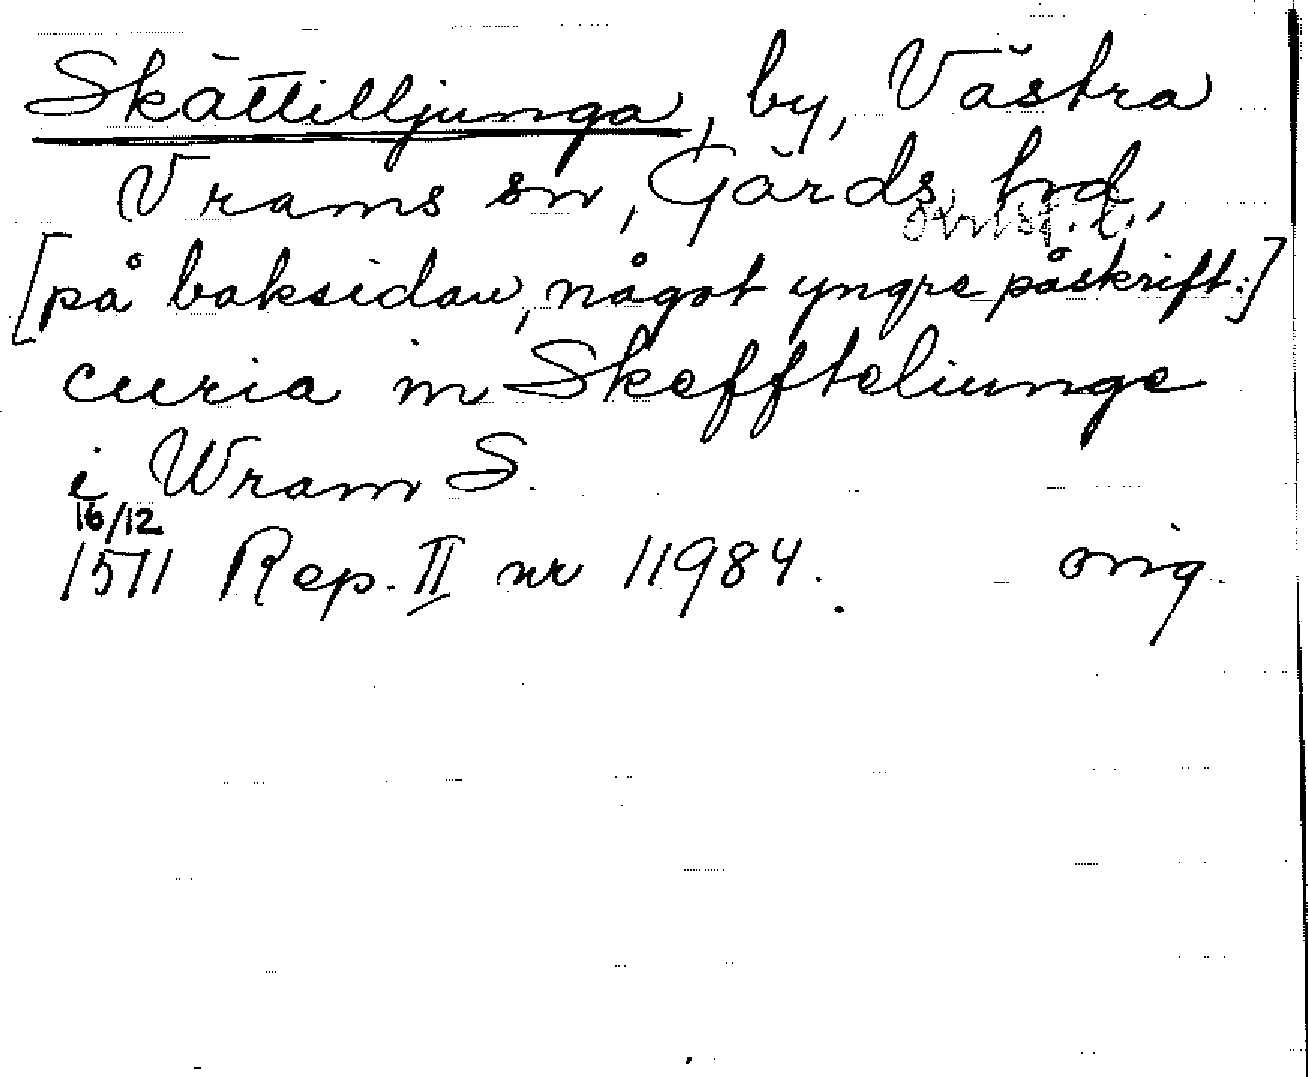 Skättilljunga, by, Västra
Vrams sn, Gärds hd,
Krist. l.
[på baksidan, något yngre påskrift:]
curia in Skeffteliunge
i Wram S.
16/12
1571 Rep. II nr 11984. orig.